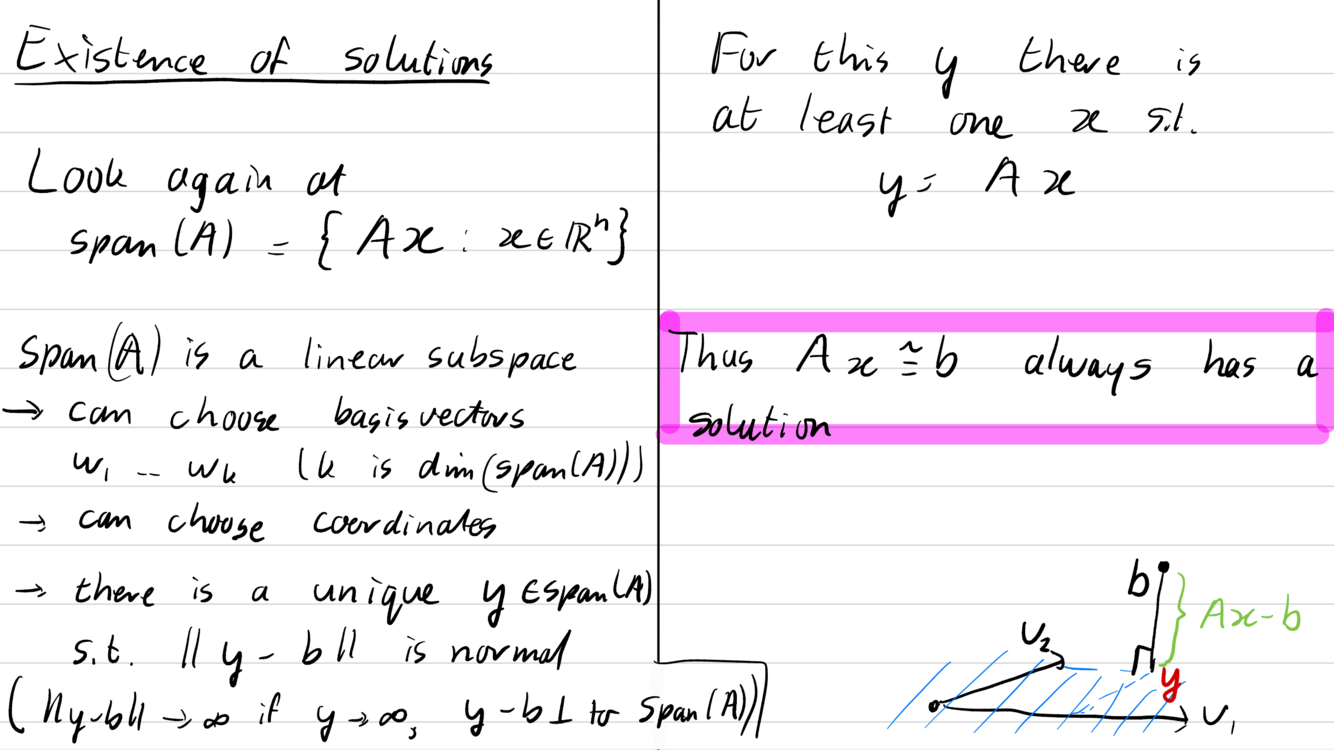 Existence of solutions
Look again at
span (A) = { Ax : x ∈ ℝⁿ }
Span (A) is a linear subspace
→ can choose basis vectors
w₁ -- wₖ (k is dim(span(A)))
→ can choose coordinates
→ there is a unique y ∈ span(A)
s.t. ‖ y - b ‖ is normal
( ‖y-b‖ → ∞ if y → ∞, y-b ⊥ to span(A))
For this y there is
at least one x s.t.
y = A x
Thus A x ≅ b always has a
solution
b
Ax-b
v₂
y
v₁